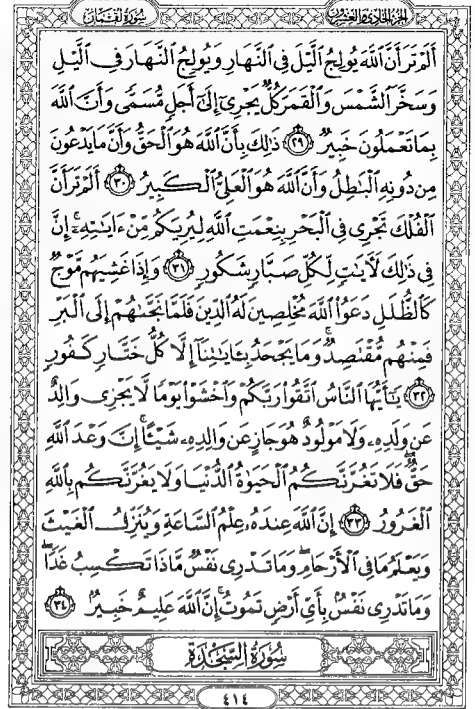 سورة لقمان
الجزء الحادي والعشرون
أَلَمْ تَرَ أَنَّ ٱللَّهَ يُولِجُ ٱلَّيْلَ فِى ٱلنَّهَارِ وَيُولِجُ ٱلنَّهَارَ فِى ٱلَّيْلِ
وَسَخَّرَ ٱلشَّمْسَ وَٱلْقَمَرَ كُلٌّ يَجْرِىٓ إِلَىٰٓ أَجَلٍ مُّسَمًّى وَأَنَّ ٱللَّهَ
بِمَا تَعْمَلُونَ خَبِيرٌ ٢٩ ذَٰلِكَ بِأَنَّ ٱللَّهَ هُوَ ٱلْحَقُّ وَأَنَّ مَا يَدْعُونَ
مِن دُونِهِ ٱلْبَٰطِلُ وَأَنَّ ٱللَّهَ هُوَ ٱلْعَلِىُّ ٱلْكَبِيرُ ٣٠ أَلَمْ تَرَ أَنَّ
ٱلْفُلْكَ تَجْرِى فِى ٱلْبَحْرِ بِنِعْمَتِ ٱللَّهِ لِيُرِيَكُم مِّنْ ءَايَٰتِهِۦٓ ۚ إِنَّ
فِى ذَٰلِكَ لَءَايَٰتٍ لِّكُلِّ صَبَّارٍ شَكُورٍ ٣١ وَإِذَا غَشِيَهُم مَّوْجٌ
كَٱلظُّلَلِ دَعَوُا۟ ٱللَّهَ مُخْلِصِينَ لَهُ ٱلدِّينَ فَلَمَّا نَجَّىٰهُمْ إِلَى ٱلْبَرِّ
فَمِنْهُم مُّقْتَصِدٌ ۚ وَمَا يَجْحَدُ بِـَٔايَٰتِنَآ إِلَّا كُلُّ خَتَّارٍ كَفُورٍ
٣٢ يَٰٓأَيُّهَا ٱلنَّاسُ ٱتَّقُوا۟ رَبَّكُمْ وَٱخْشَوْا۟ يَوْمًا لَّا يَجْزِى وَالِدٌ
عَن وَلَدِهِۦ وَلَا مَوْلُودٌ هُوَ جَازٍ عَن وَالِدِهِۦ شَيْـًٔا ۚ إِنَّ وَعْدَ ٱللَّهِ
حَقٌّ ۖ فَلَا تَغُرَّنَّكُمُ ٱلْحَيَوٰةُ ٱلدُّنْيَا وَلَا يَغُرَّنَّكُم بِٱللَّهِ
ٱلْغَرُورُ ٣٣ إِنَّ ٱللَّهَ عِندَهُۥ عِلْمُ ٱلسَّاعَةِ وَيُنَزِّلُ ٱلْغَيْثَ
وَيَعْلَمُ مَا فِى ٱلْأَرْحَامِ ۖ وَمَا تَدْرِى نَفْسٌ مَّاذَا تَكْسِبُ غَدًا ۖ
وَمَا تَدْرِى نَفْسٌۢ بِأَىِّ أَرْضٍ تَمُوتُ ۚ إِنَّ ٱللَّهَ عَلِيمٌ خَبِيرٌۢ ٣٤
سُورَةُ السَّجْدَةِ
٤١٤